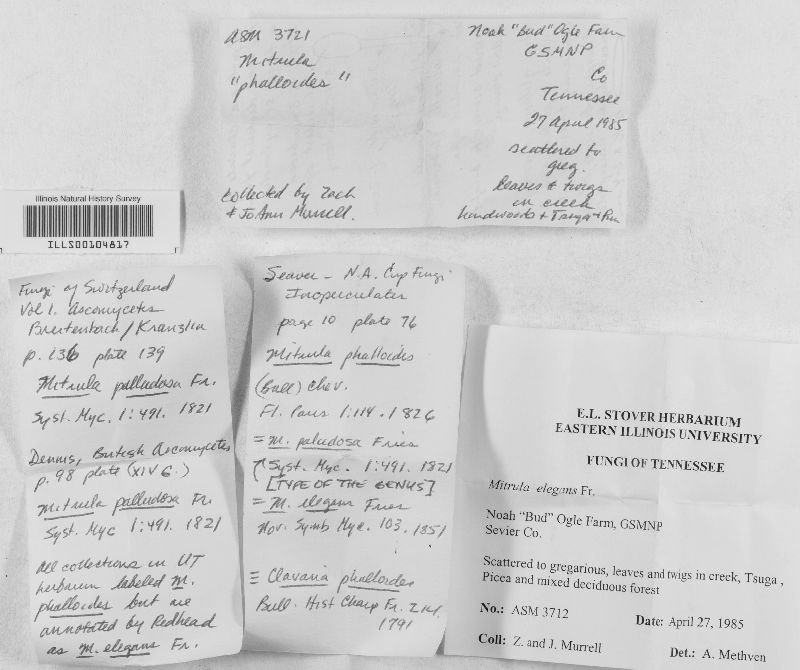 ASM 3721
Mitrula
"phalloides"
Collected by Zach
& JoAnn Murrell.
Noah "Bud" Ogle Farm
GSMNP
Co
Tennessee
27 April 1985
scattered to
greg.
leaves & twigs
in creek
hardwoods & Tsuga &
Illinois Natural History Survey
ILLS00104817
Fungi of Switzerland
Vol 1. Ascomycetes
Breitenbach/Kranzlin
p. 136 plate 139
Mitrula palludosa Fr.
Syst. Myc. 1:491. 1821
Dennis, British Ascomycetes
p. 98 plate (XIV G.)
Mitrula palludosa Fr.
Syst. Myc 1:491. 1821
All collections in UT
herbarium labeled M.
phalloides but are
annotated by Redhead
as M. elegans Fr.
Seaver - N.A. Cup Fungi
Inoperculates
page 10 plate 76
Mitrula phalloides
(Bull) Chev.
Fl. Paris 1:114. 1826
= M. paludosa Fries
Syst. Myc. 1:491. 1821
[TYPE OF THE GENUS]
= M. elegans Fries
Nov. Symb Myc. 103. 1851
≡ Clavaria phalloides
Bull. Hist Champ Fr. 214.
1791
E.L. STOVER HERBARIUM
EASTERN ILLINOIS UNIVERSITY
FUNGI OF TENNESSEE
Mitrula elegans Fr.
Noah "Bud" Ogle Farm, GSMNP
Sevier Co.
Scattered to gregarious, leaves and twigs in creek, Tsuga ,
Picea and mixed deciduous forest
No.: ASM 3712
Date: April 27, 1985
Coll: Z. and J. Murrell
Det.: A. Methven